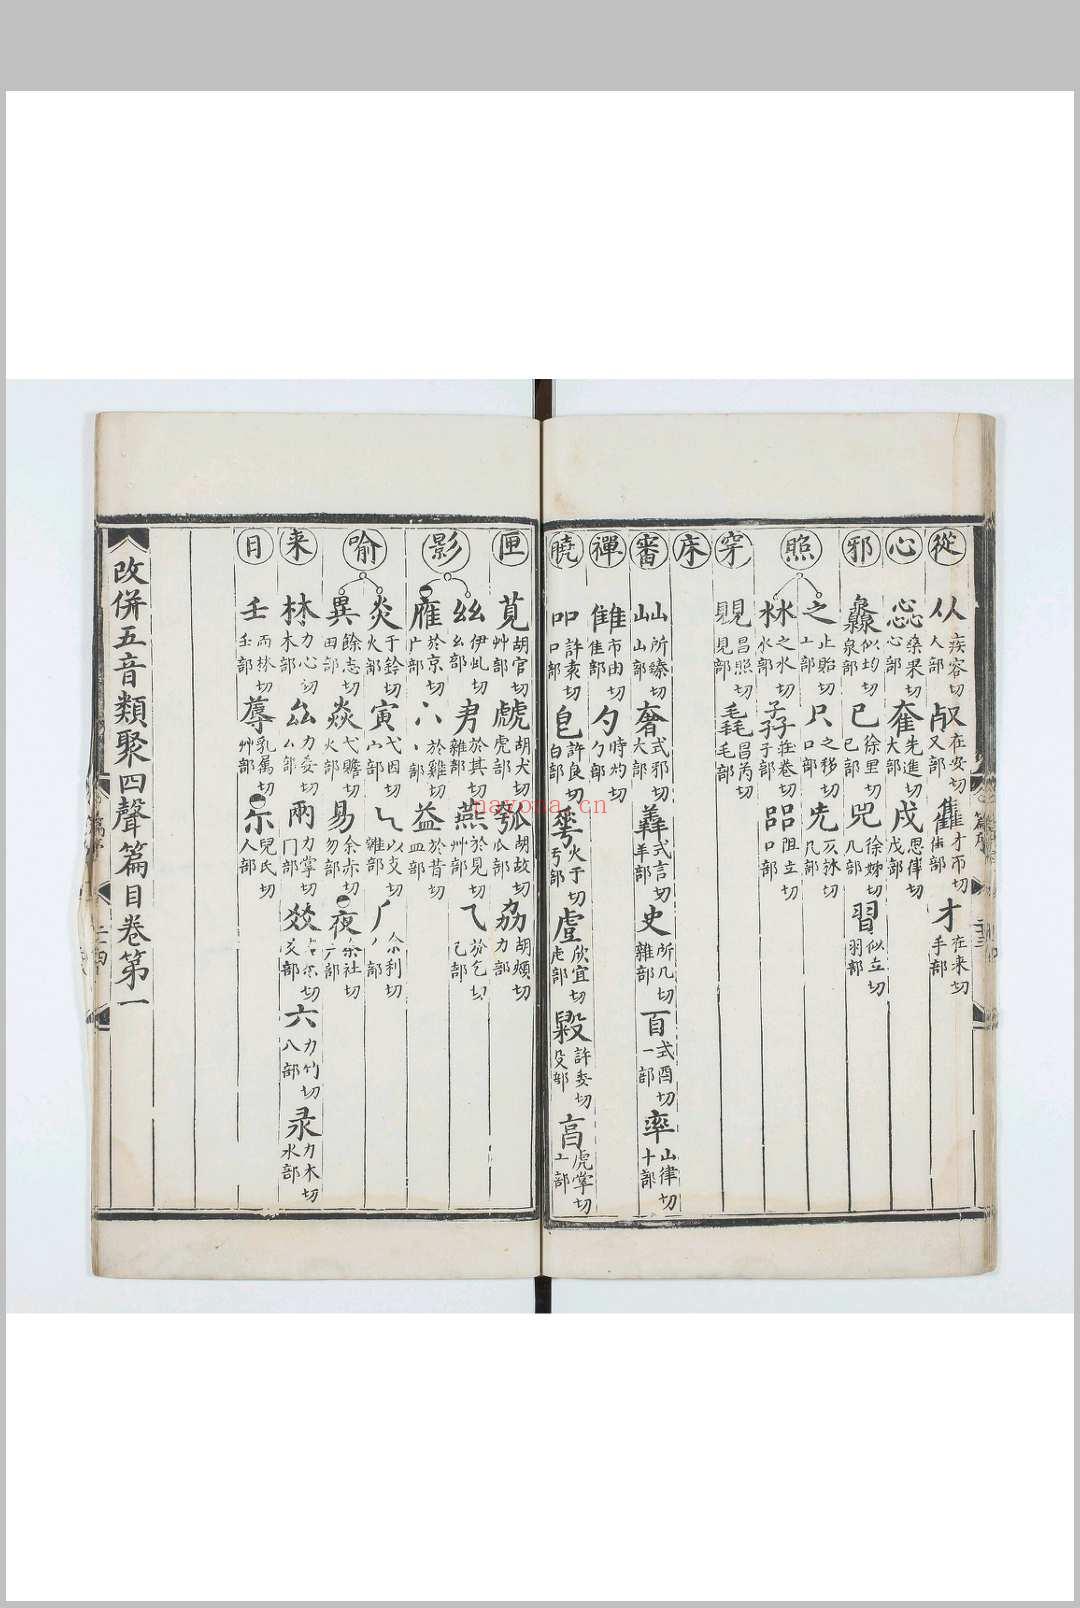 從
从 疾容切 人部 㕡 在安切 又部 雥 才市切 隹部 才 在来切 手部
心
惢 桒果切 心部 奞 先進切 大部 戌 思律切 戊部
邪
灥 似均切 泉部 巳 徐里切 巳部 兕 徐姊切 几部 習 似立切 羽部
照
之 止貽切 丄部 只 之移切 口部
沝 之水切 水部 孨 莊卷切 子部 㗊 阻立切 口部
穿
覞 昌照切 見部 毳 昌芮切 毛部
床
審
山 所臻切 山部 奢 式邪切 大部 羴 式言切 羊部 史 所几切 雜部 百 式酉切 一部 率 山律切 十部
禪
雔 市由切 隹部 勺 時灼切 勹部
曉
吅 許袁切 口部 皀 許良切 白部 華 火于切 亏部 虗 欣宜切 虍部 毇 許委切 殳部 亯 虎掌切 亠部
匣
萈 胡官切 艸部 虤 胡犬切 虎部 瓠 胡故切 瓜部 劦 胡頰切 力部
影
丝 伊虬切 幺部 㐆 於其切 雜部 燕 於見切 艸部 乁 於乞切 乙部
雁 於京切 广部 八 於雞切 丶部 益 於昔切 皿部
喻
炎 于鈴切 火部 寅 弋因切 宀部 乀 以支切 雜部 丿 余利切 丿部
異 餘志切 田部 焱 弋贍切 火部 易 余赤切 勿部 夜 余社切 亠部
来
林 力心切 木部 厽 力委切 厶部 兩 力掌切 冂部 㸚 爻部 六 力竹切 八部 录 力木切 水部
日
壬 而林切 壬部 蓐 乳属切 艸部 尒 兒氏切 人部
改併五音類聚四聲篇目卷第一
nayona.cn